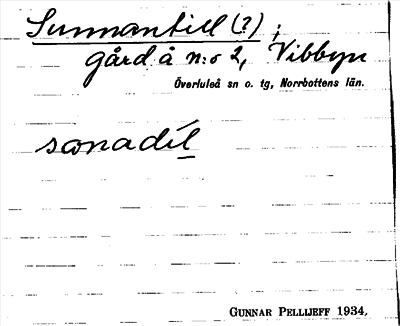 Sunnantill (?) ;
gård å n:o 2, Vibbyn
Överluleå sn o. tg, Norrbottens län.
sɷnadíl
GUNNAR PELLIJEFF 1934,